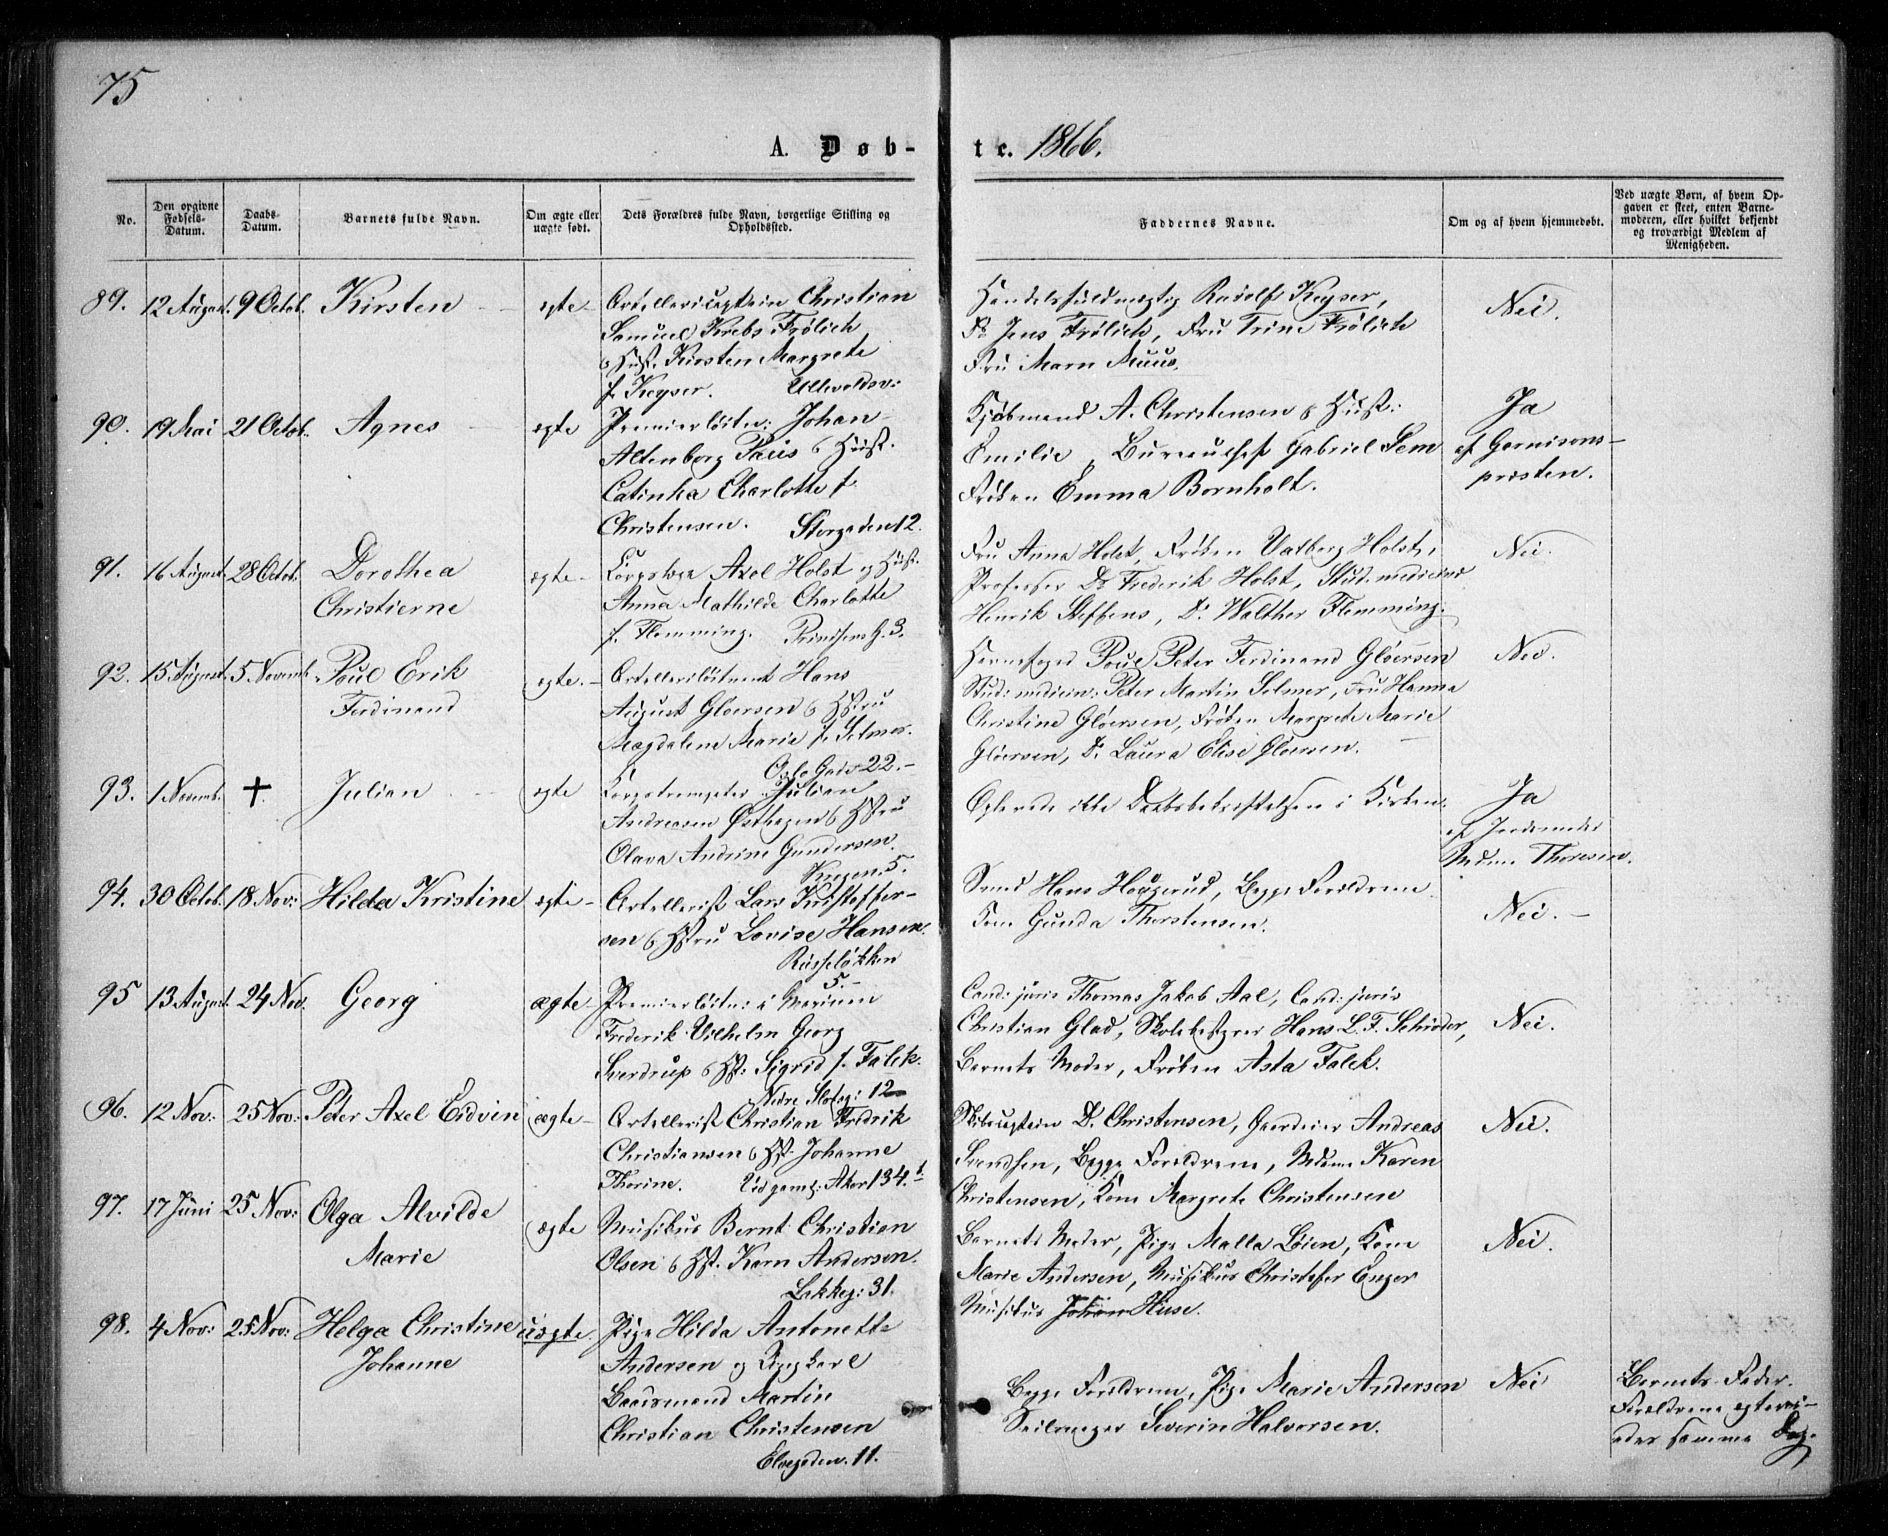 75
A. Døb-
te. 1866.
No.
Den opgivne Fødsels-Datum.
Daabs-Datum.
Barnets fulde Navn.
Om ægte eller uægte født.
Dets Forældres fulde Navn, borgerlige Stilling og Opholdssted.
Faddernes Navne.
Om og af hvem hjemmedøbt.
Ved uægte Børn, af hvem Op-
gaven er skeet, enten Barne-
moderen, eller hvilket bekjendt
og troværdigt Medlem af
Menigheden.
89. 12 August. 9 Octob. Kirsten ægte
Artellericaptein Christian
Samuel Krebs Frølich
& Hust. Kirsten Margrete
f. Keyser. Ullevoldsv:
Handelsfuldmægtig Rudolf Keyser,
Dr Jens Frølich, Fru Trine Frølich
Fru Maren Muus.
Nei.
90. 19 Mai 21 Octob. Agnes ægte
Premierløitn: Johan
Altenborg Paus & Hust.
Catinka Charlotte f.
Christensen. Storgaden 12.
Kjøbmand A. Christensen & Hust:
Emilie, Bureauchef Gabriel Sem
Frøken Emma Bornholt.
Ja
af Garnisons-
præsten.
91. 16 August. 28 Octob. Dorothea
Christierne
ægte
Corpslæge Axel Holst og Hust.
Anna Mathilde Charlotte
f. Flemming. Prindsens G. 3.
Fru Anna Holst, Frøken Valborg Holst,
Professor Dr Frederik Holst, Stud. medicin
Henrik Steffens, Dr. Walther Flemming.
Nei.
92. 15 August. 5 Novemb. Poul Erik
Ferdinand
ægte.
Artelleriløitnent Hans
August Gløersen & Hstru
Magdalene Marie f. Selmer.
Oslo Gade 22.
Poul Peter Ferdinand Gløersen
Stud: medicin: Peter Martin Selmer, Fru Hanna
Christine Gløersen, Frøken Margrete Marie
Gløersen, Dr. Laura Elise Gløersen.
Nei.
93. 1 Novemb. + Julian ægte
Corpstrompeter Julian
Andreasen Østhagen & Hstru
Olava Andrine Gundersen.
Krogen 5.
Oplevede ikke Daabsbekræftelsen i Kirken.
Ja
af Jordemoder
Mdme Thoresen.
94. 30 Octob. 18 Nov: Hilda Kristine ægte
Artellerist Lars Kristoffer-
sen & Hstru Lovise Hansen.
Russeløkken
5.
Svend Hans Haugerud, Begge Forældrene
Kone Gunda Thorstensen.
Nei.
95 13 August. 24 Nov. Georg ægte
Premierløitn: i Marinen
Frederik Vilhelm Georg
Sverdrup & Hst: Sigrid f. Falck.
Nedre Slotsg: 12
Cand: juris Thomas Jakob Aal, Cand: juris
Christian Glad, Skolebestyrer Hans L. F. Schiøder,
Barnets Moder, Frøken Asta Falck.
Nei.
96. 12 Nov: 25 Nov: Peter Axel Eidvin ægte
Artellerist Christian Fredrik
Christiansen & Hst. Johanne
Thorine. Ved gaml: Aker 134.
Skibscaptein D. Christensen, Gaardeier Andreas
Svendsen, Begge Forældrene, Mdme Karen
Christensen, Kone Margrete Christensen
Nei.
97. 17 Juni 25 Nov: Olga Alvilde
Marie
ægte
Musikus Bernt Christian
Olsen & Hst. Karn Andersen.
Lakkeg: 31.
Barnets Moder, Pige Malla Løien, Kone
Marie Andersen, Musikus Christofer Enger
Musikus Johan Huse.
Nei.
98. 4 Nov: 25 Nov: Helga Christine
Johanne
uægte.
Pige Hilda Antonette
Andersen og Ungkarl
Baadsmand Martin
Christian Christensen
Elvegaden. 11.
Begge Forældrene, Pige Marie Andersen
Seilmager Severin Halvorsen.
Nei
Barnets Fader.
Forældrene ægtevi-
edes samme Dag.